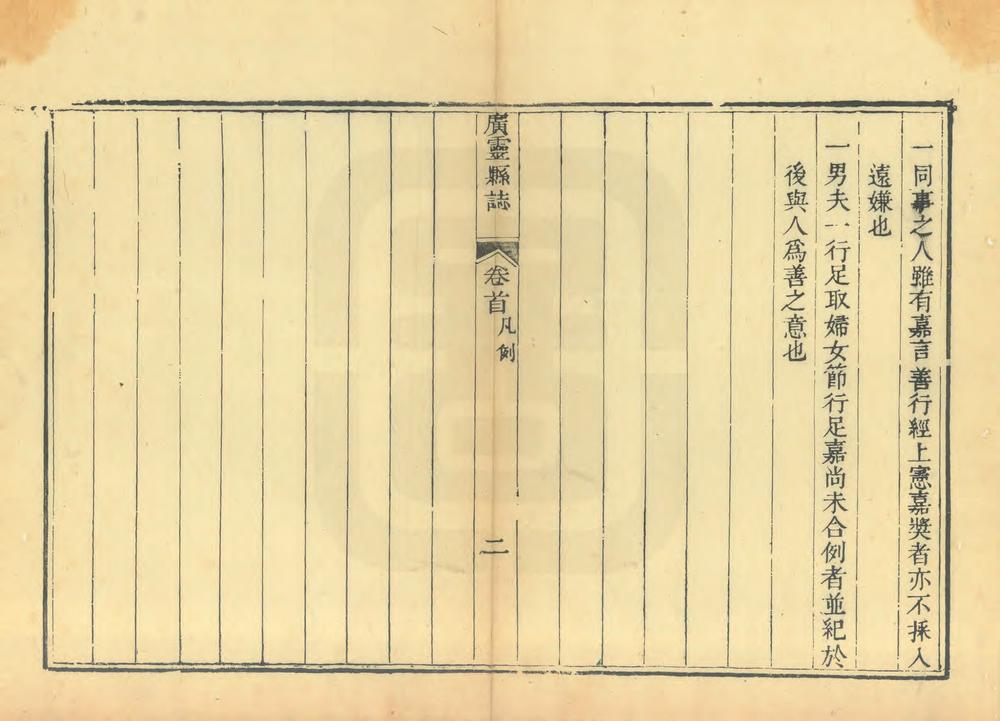 一同事之人雖有嘉言善行經上憲嘉奬者亦不採入
遠嫌也
一男夫一行足取婦女節行足嘉尚未合例者並紀於
後與人爲善之意也
廣靈縣誌
卷首凡例
二